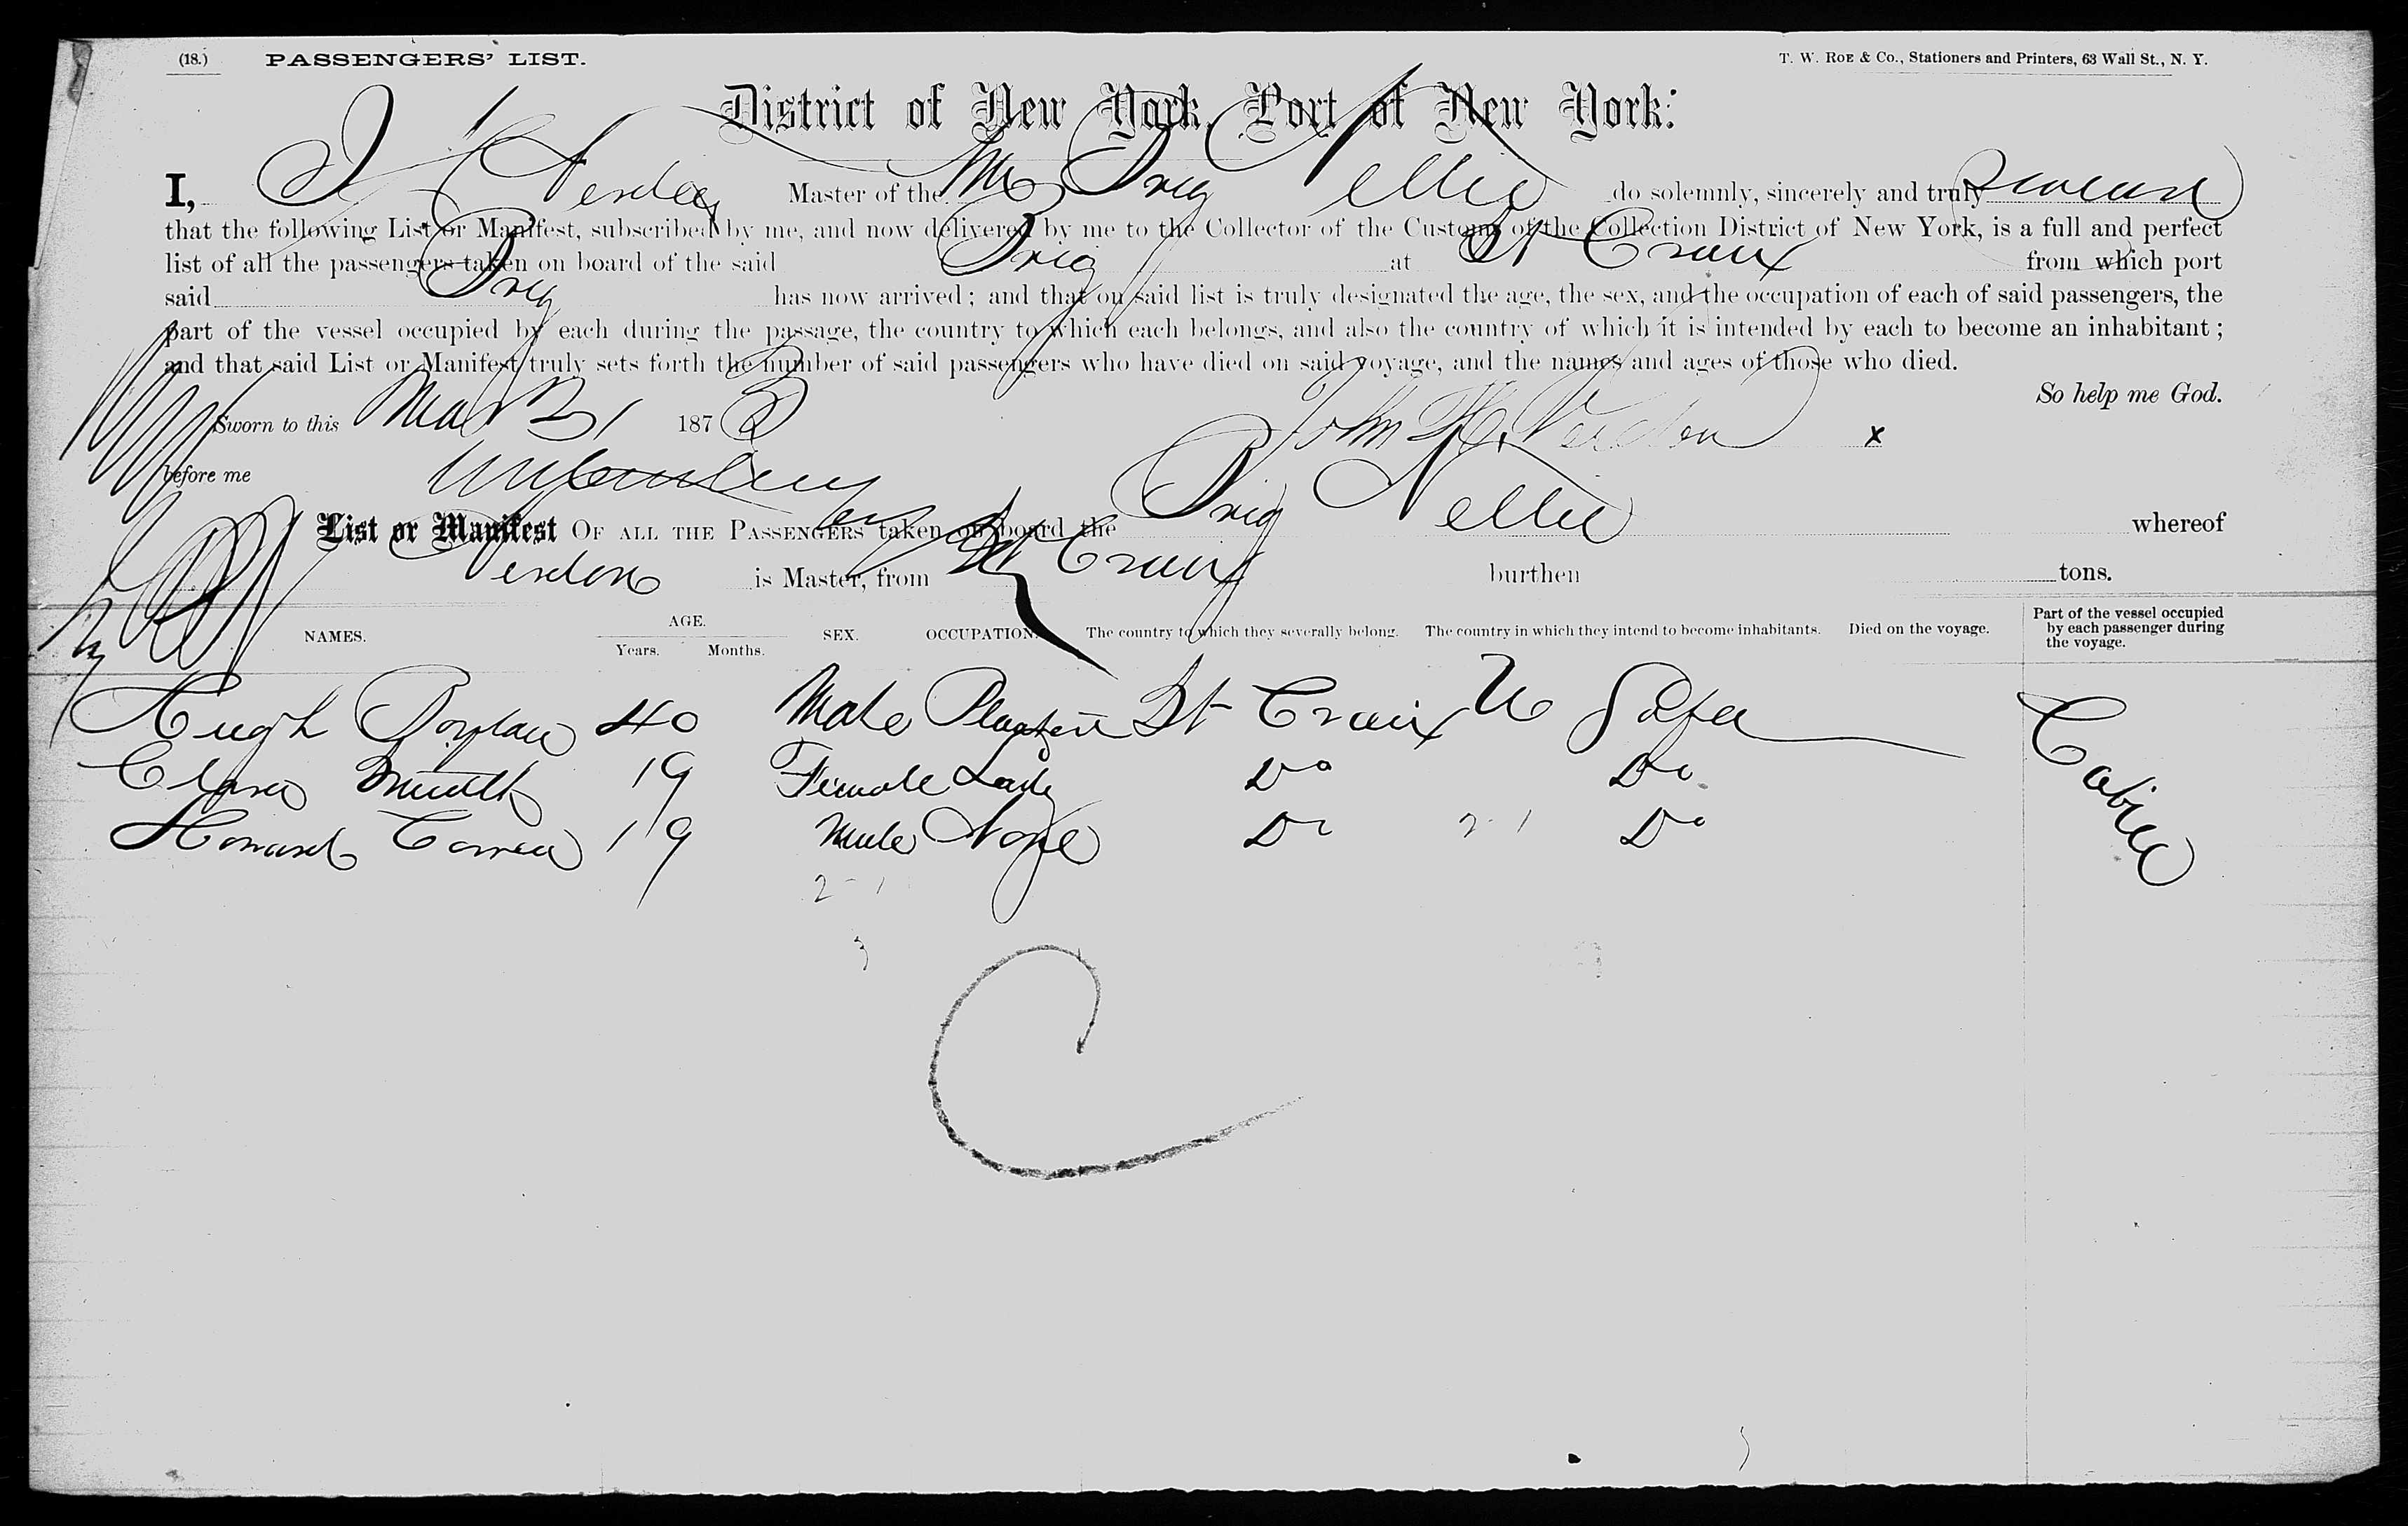 (18.) PASSENGERS' LIST. T. W. ROE & Co., Stationers and Printers, 63 Wall St., N. Y.
District of New York, Port of New York:
I, Master of the Brig Nellie do solemnly, sincerely and truly swear
that the following List or Manifest, subscribed by me, and now delivered by me to the Collector of the Customs of the Collection District of New York, is a full and perfect
list of all the passengers taken on board of the said Brig at St Croix from which port
said Brig has now arrived; and that on said list is truly designated the age, the sex, and the occupation of each of said passengers, the
part of the vessel occupied by each during the passage, the country to which each belongs, and also the country of which it is intended by each to become an inhabitant;
and that said List or Manifest truly sets forth the number of said passengers who have died on said voyage, and the names and ages of those who died.
So help me God.
Sworn to this Mar 31 1873 John H. Verdon x
before me
List or Manifest OF ALL THE PASSENGERS taken on board the Brig Nellie whereof
Verdon is Master, from St Croix burthen tons.
NAMES. AGE. Years. Months. SEX. OCCUPATION. The country to which they severally belong. The country in which they intend to become inhabitants. Died on the voyage. Part of the vessel occupied by each passenger during the voyage.
Hugh 40 Male Planter St Croix U States Cabin
Clara 19 Female Lady Do Do
Howard 19 Male None Do 2-1 Do
2-1
3
C